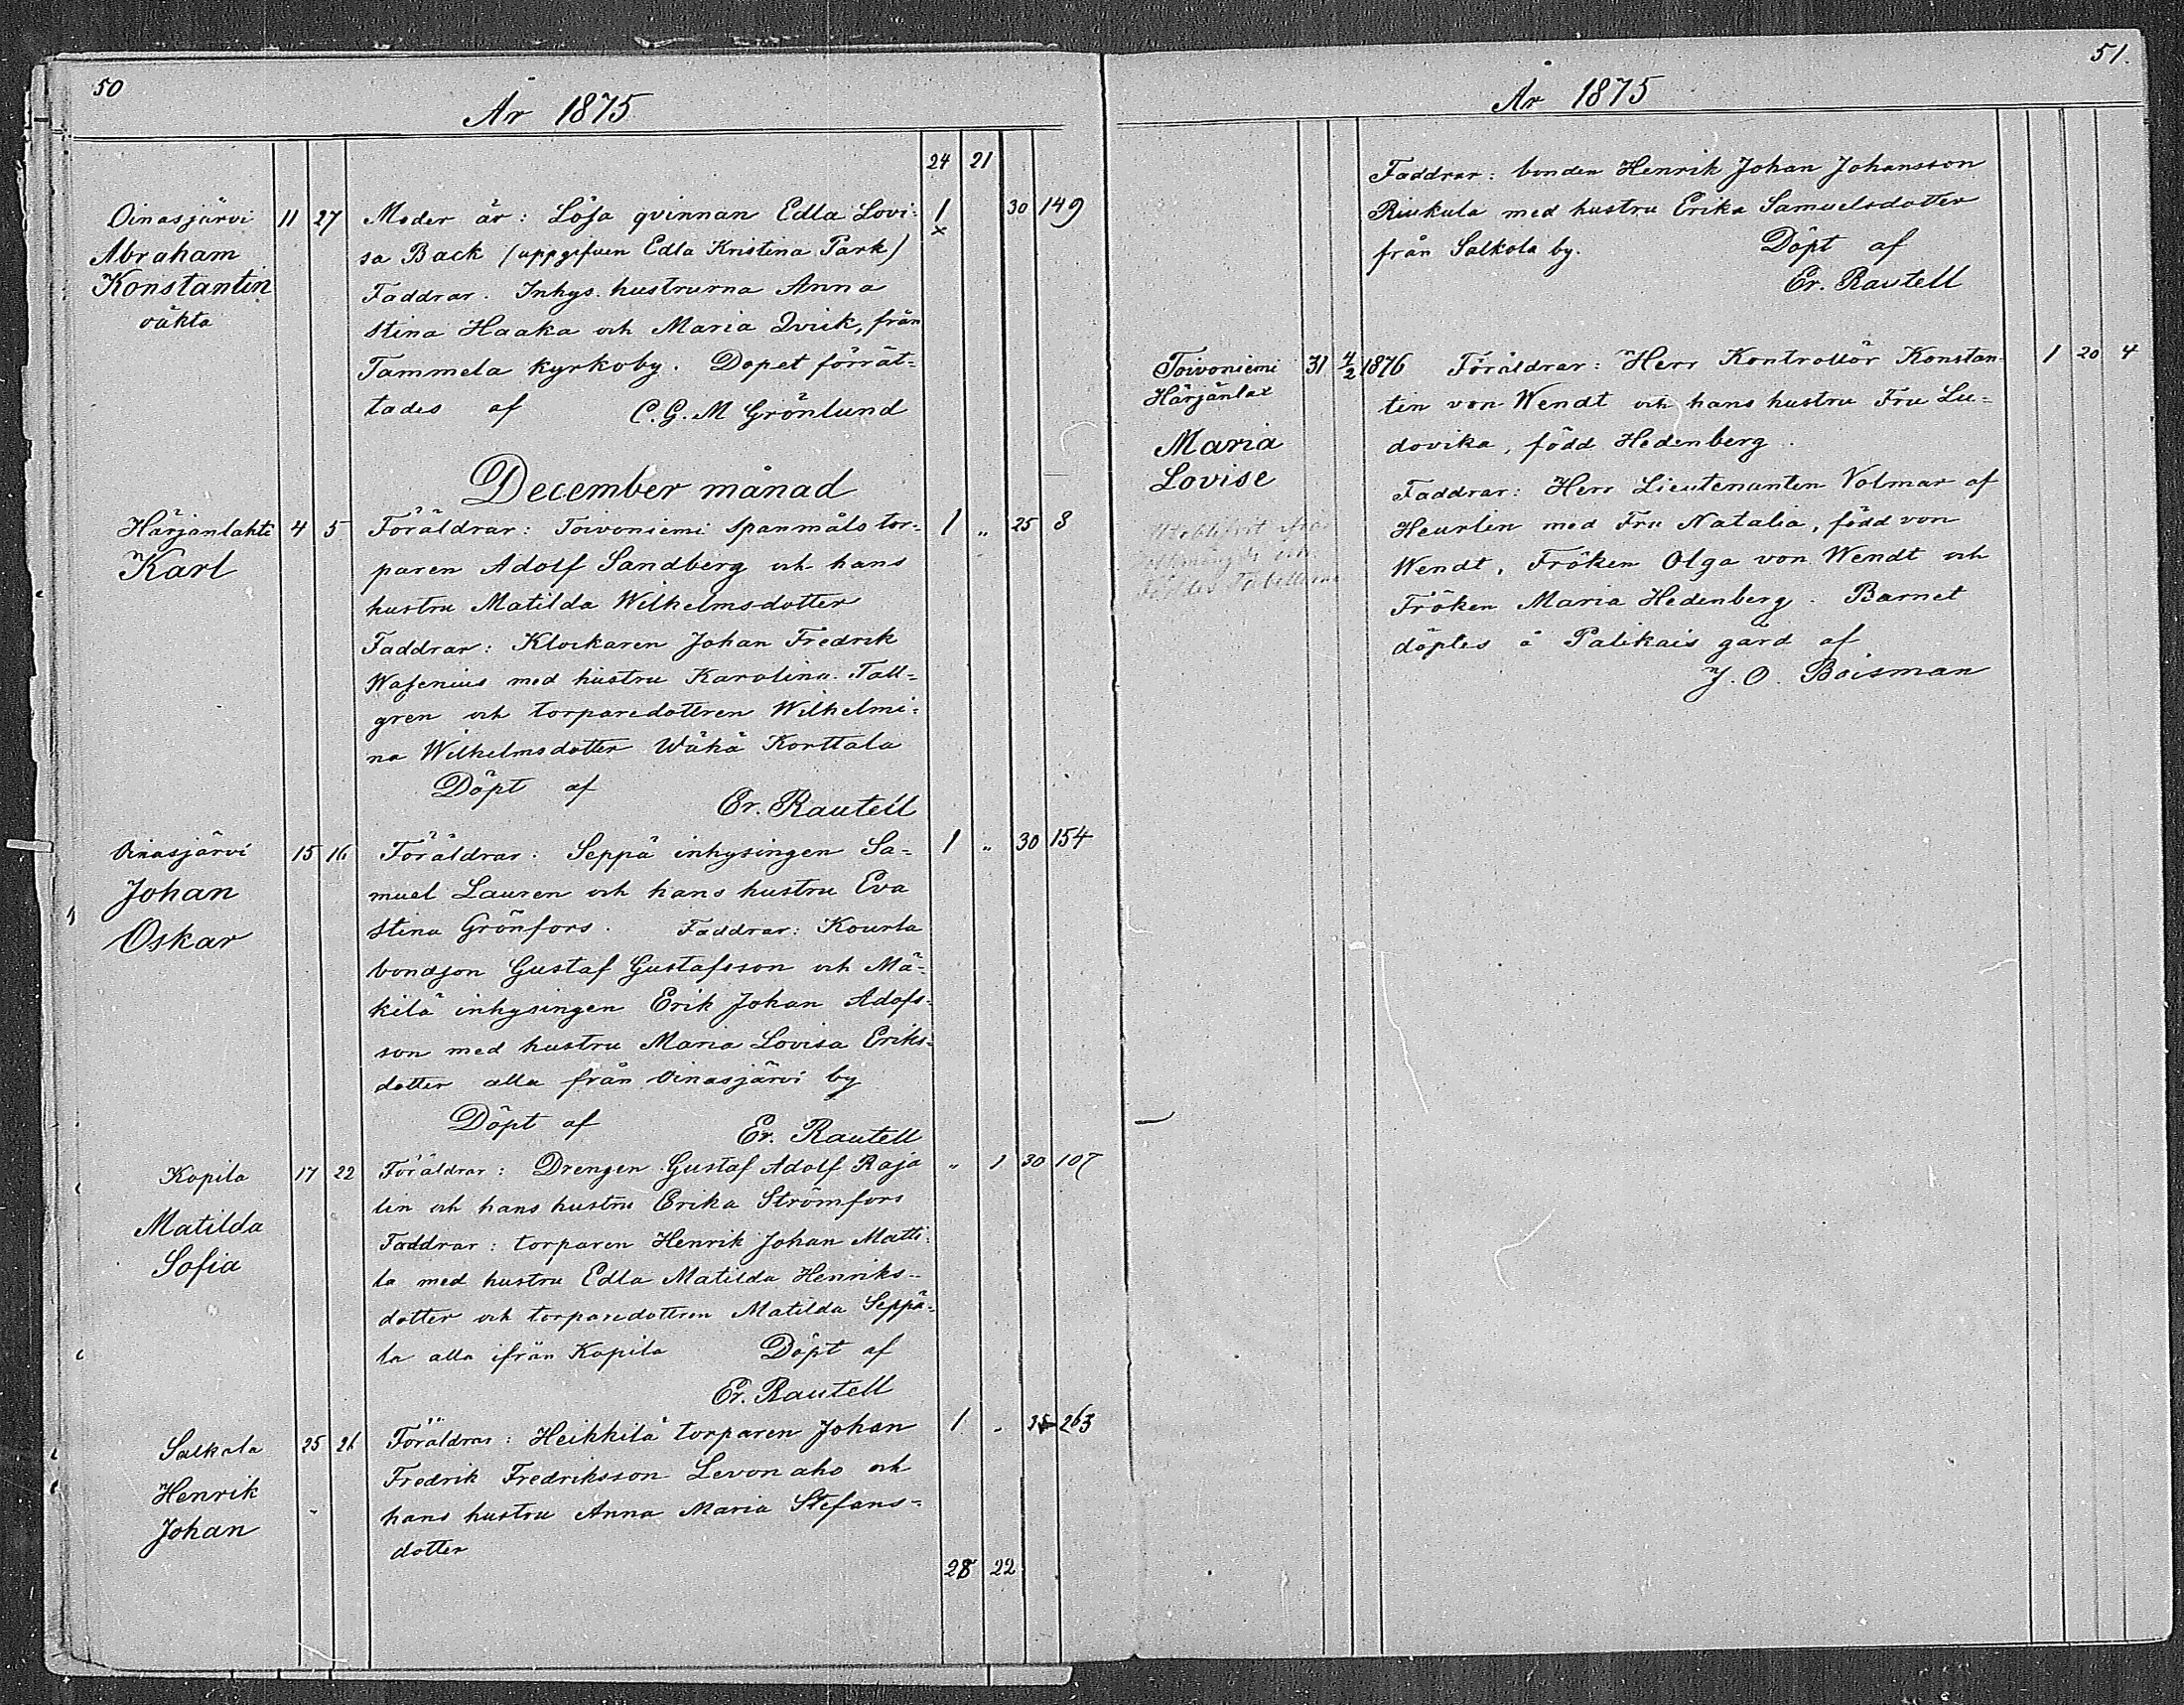 50
År 1875
24 21
Oinasjärvi 11 27 Moder är: Lösa qvinnan Edla Lovi= 1 30 149
Abraham sa Back (uppgifven Edla Kristina Park) x
Konstantin Faddrar. Inhys. hustrurna Anna
oäkta Stina Haaka och Maria Qviik, från
Tammela kyrkoby. Dopet förrät=
tades af C. G. M Grönlund
December månad
Härjänlahti 4 5 Föräldrar: Toivoniemi spanmåls tor= 1 „ 25 8
Karl paren Adolf Sandberg och hans
hustru Matilda Wilhelmsdotter
Faddrar: Klockaren Johan Fredrik
Wasenius med hustru Karolina Tall=
gren och torparedottren Wilhelmi=
na Wilhelmsdotter Wähä Korttala
Döpt af
Er. Rautell
Oinasjärvi 15 16 Föräldrar: Seppä inhysingen Sa= 1 „ 30 154
Johan muel Lauren och hans hustru Eva
Oskar Stina Grönfors. Faddrar: Kourla
bondson Gustaf Gustafsson och Mä=
kilä inhysingen Erik Johan Adofs=
son med hustru Maria Lovisa Eriks=
dotter alla från Oinasjärvi by
Döpt af
Er. Rautell
Kopila 17 22 Föräldrar: Drengen Gustaf Adolf Raja „ 1 30 107
lin och hans hustru Erika Strömfors
Matilda Faddrar: torparen Henrik Johan Matti=
Sofia la med hustru Edla Matilda Henriks=
dotter och torparedottren Matilda Seppä=
la alla ifrån Kopila Döpt af
Er. Rautell
Salkola 25 26 Föräldrar: Heikkilä torparen Johan 1 - 263
Henrik Fredrik Fredriksson Levonaho och
Johan hans hustru Anna Maria Stefans=
dotter
28 22
51.
År 1875
Faddrar: bonden Henrik Johan Johansson
Riukula med hustru Erika Samuelsdotter
från Salkola by. Döpt af
Er. Rautell
Toivoniemi 31 4/2 1876 Föräldrar: Herr Kontrollör Konstan= 1 20 4
Härjänlax tin von Wendt och hans hustru Fru Lu=
Maria dovika, född Hedenberg.
Lovise Faddrar: Herr Lieutenanten Volmar af
Heurlin med Fru Natalia, född von
Wendt, Fröken Olga von Wendt och
Fröken Maria Hedenberg. Barnet
döptes å Palikais gård af
J. O. Boisman